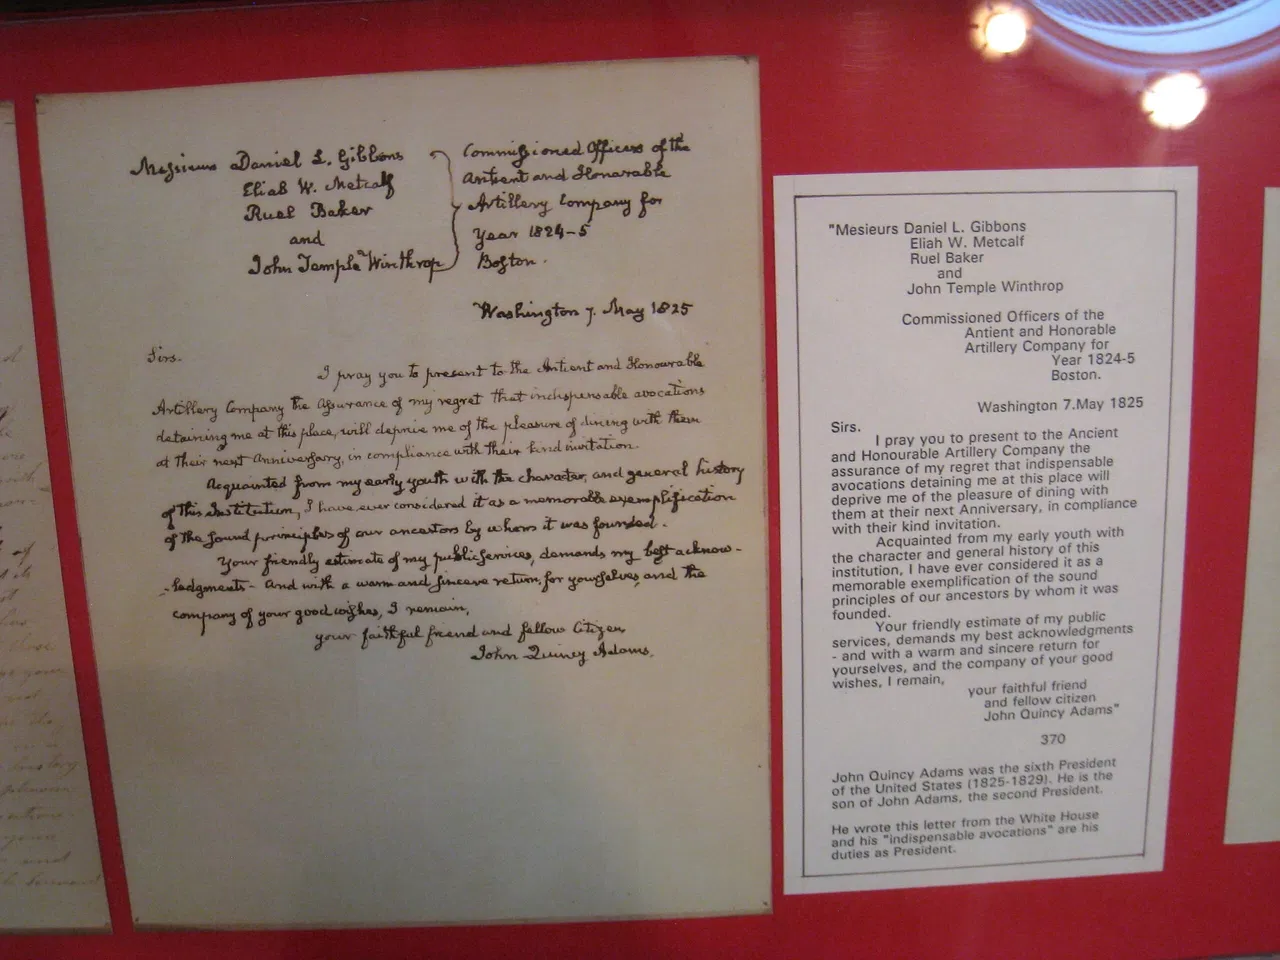 Messieurs Daniel L. Gibbons
Eliab W. Metcalf
Ruel Baker
and
John Temple Winthrop
Commissioned Officers of the
Antient and Honarable
Artillery Company for
Year 1824-5
Boston.
Washington 7. May 1825
Sirs.
I pray you to present to the Antient and Honourable
Artillery Company the assurance of my regret that indispensable avocations
detaining me at this place, will deprive me of the pleasure of dining with them
at their next Anniversary, in compliance with their kind invitation.
Acquainted from my early youth with the character, and general history
of this Institution, I have ever considered it as a memorable exemplification
of the sound principles of our ancestors by whom it was founded.
Your friendly estimate of my public services, demands my best acknow-
-ledgments- And with a warm and sincere return, for yourselves, and the
company of your good wishes, I remain,
your faithful friend and fellow Citizen
John Quincy Adams.
"Mesieurs Daniel L. Gibbons
Eliah W. Metcalf
Ruel Baker
and
John Temple Winthrop
Commissioned Officers of the
Antient and Honorable
Artillery Company for
Year 1824-5
Boston.
Washington 7.May 1825
Sirs.
I pray you to present to the Ancient
and Honourable Artillery Company the
assurance of my regret that indispensable
avocations detaining me at this place will
deprive me of the pleasure of dining with
them at their next Anniversary, in compliance
with their kind invitation.
Acquainted from my early youth with
the character and general history of this
institution, I have ever considered it as a
memorable exemplification of the sound
principles of our ancestors by whom it was
founded.
Your friendly estimate of my public
services, demands my best acknowledgments
- and with a warm and sincere return for
yourselves, and the company of your good
wishes, I remain,
your faithful friend
and fellow citizen
John Quincy Adams"
370
John Quincy Adams was the sixth President
of the United States (1825-1829). He is the
son of John Adams, the second President.
He wrote this letter from the White House
and his "indispensable avocations" are his
duties as President.